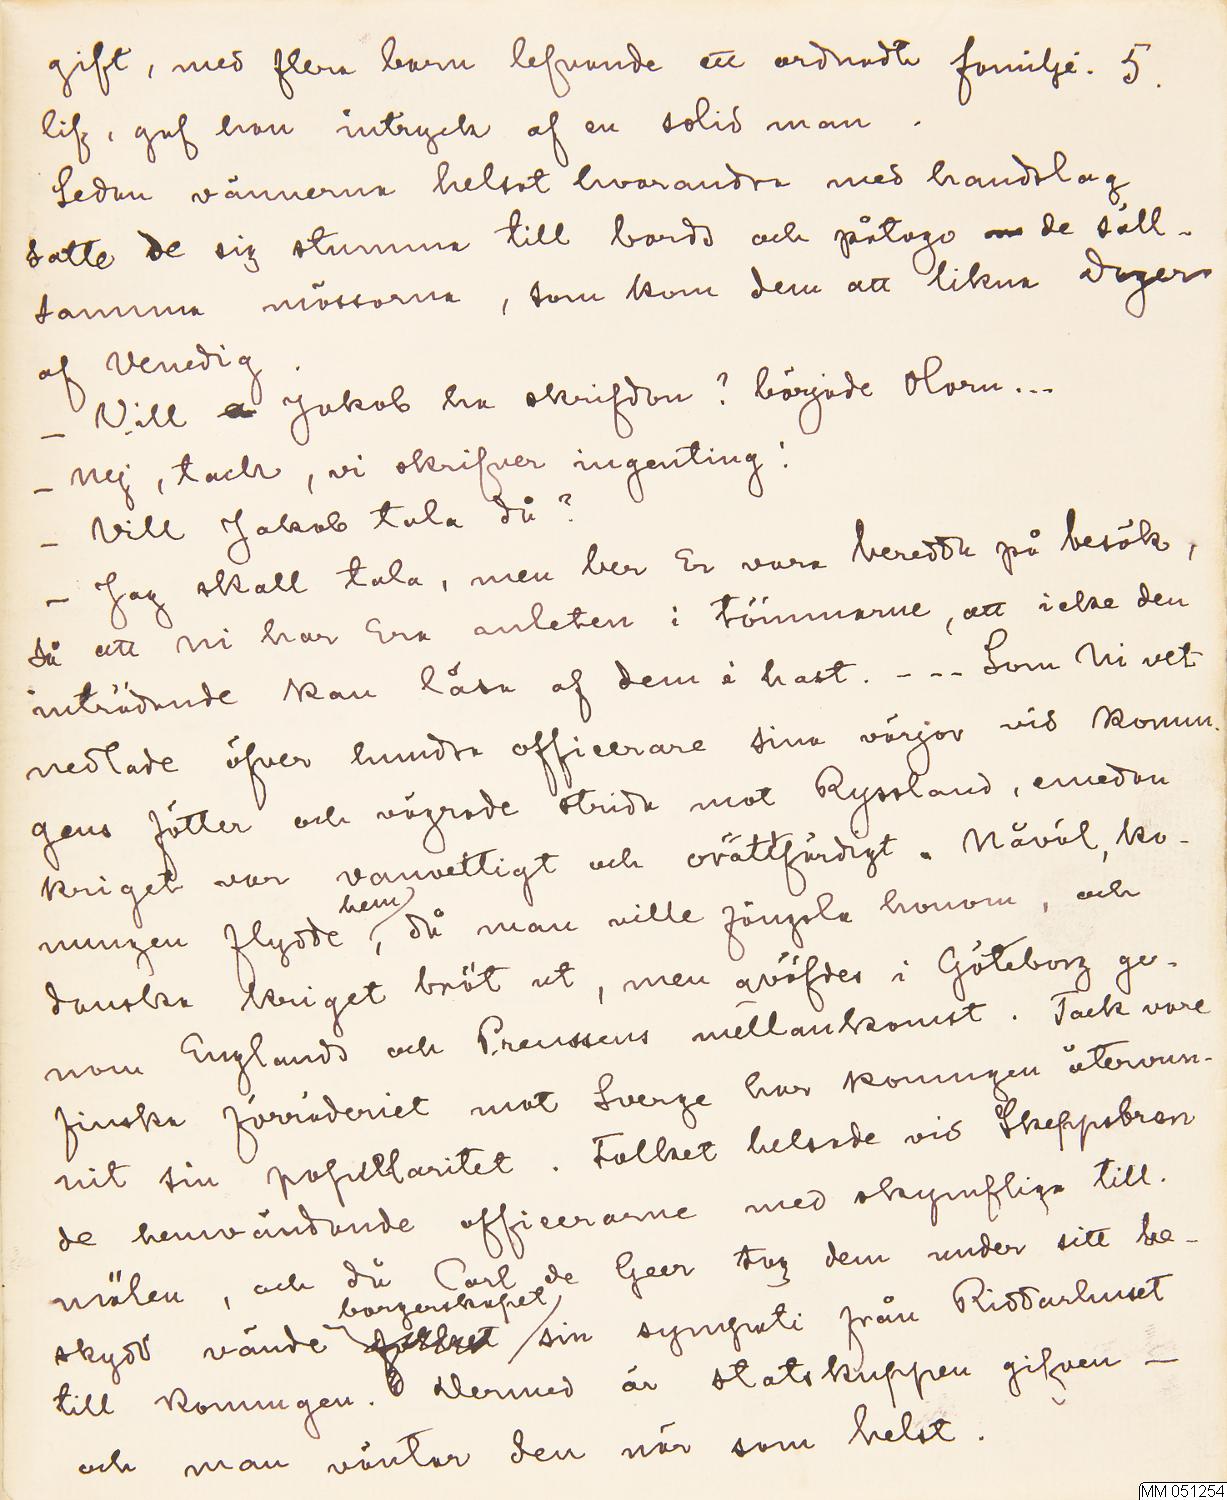 gift, med flera barn lefvande ett ordnadt familje- 5.
lif, gaf han intryck af en solid man.
Sedan vännerna helsat hvarandra med handslag
satte de sig stumma till bords och påtogo de säll-
samma mössorna, som kom dem att likna Doger
af Venedig.
– Vill Jakob ha skrifdon? började Horn...
– Nej, tack, vi skrifver ingenting!
– Vill Jakob tala då?
– Jag skall tala, men ber Er vara beredda på besök,
så att Ni har Era anleten i tömmarne, att icke den
inträdande kan läsa af dem i hast. - - - Som Ni vet
nedlade öfver hundra officerare sina värjor vid konun-
gens fötter och vägrade strida mot Ryssland, emedan
kriget var vanvettigt och orättfärdigt. Nåväl, ko-
hem
nungen flydde, då man ville fängsla honom, och
danska kriget bröt ut, men qväfdes i Göteborg ge-
nom Englands och Preussens mellankomst. Tack vare
finska förräderiet mot Sverge har konungen återvun-
nit sin popularitet. Folket helsade vid Skeppsbron
de hemvändande officerarne med skymfliga till-
målen, och då Carl de Geer tog dem under sitt be-
borgerskapet
skydd vände folket sin sympati från Riddarhuset
till konungen. Dermed är statskuppen gifven —
och man väntar den när som helst.
MM 051254